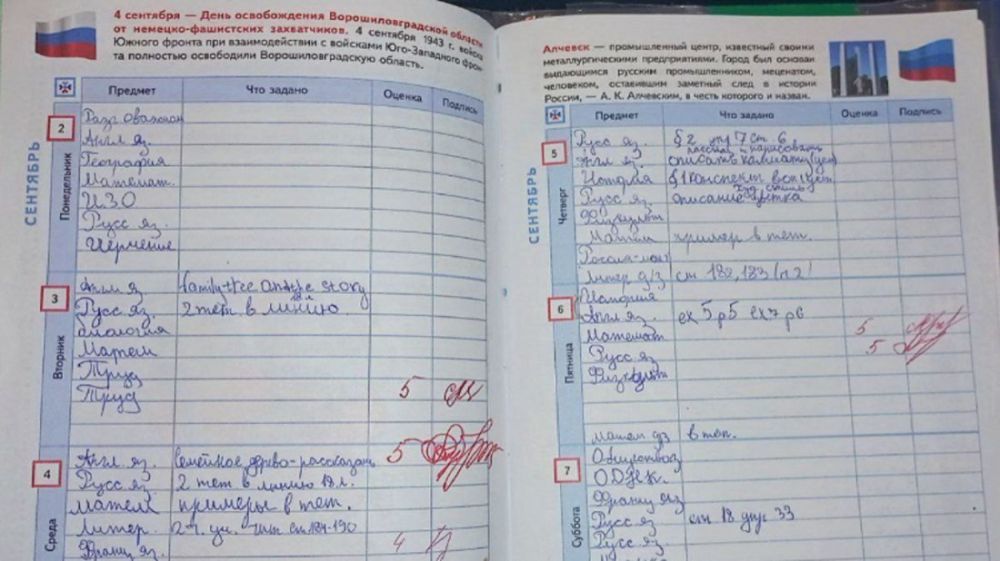 4 сентября — День освобождения Ворошиловградской области
от немецко-фашистских захватчиков. 4 сентября 1943 г. войска
Южного фронта при взаимодействии с войсками Юго-Западного фрон-
та полностью освободили Ворошиловградскую область.
Предмет Что задано Оценка Подпись
СЕНТЯБРЬ
2
Понедельник
Разговаважном
Англ яз.
География
Математ.
ИЗО
Русс яз.
Черчение
3
Вторник
Англ яз family-tree story
Русс яз. 2 тет. в линию 18 л
биология
Матем
Труд
Труд 5
4
Среда
Англ. яз. Семейное дерево-рассказать 5
Русс яз. 2 тет в линию 18 л.
матем примеры в тет.
Литер. 2 ч. уч. чит ст. 184-190
Франц яз. 4
Алчевск — промышленный центр, известный своими
металлургическими предприятиями. Город был основан
выдающимся русским промышленником, меценатом,
человеком, оставившим заметный след в истории
России, — А. К. Алчевским, в честь которого и назван.
Предмет Что задано Оценка Подпись
СЕНТЯБРЬ
5
Четверг
Русс яз. § 2 упр 7 ст. 6
Англ яз. описать комнату
История § 1 конспект
Русс яз описание цветка
Физкульт
Матем пример в тет.
Россия-мои
Литер д/з ст 182, 183 (п 2)
6
Пятница
История
Англ яз. ex 5 p5 ex 7 p6 5
Математ 5
Русс яз.
Физкульт
матем дз в теп.
7
Суббота
Обществоз
ОДНК.
Франц яз
Русс яз стр 18 упр 33
Русс яз.